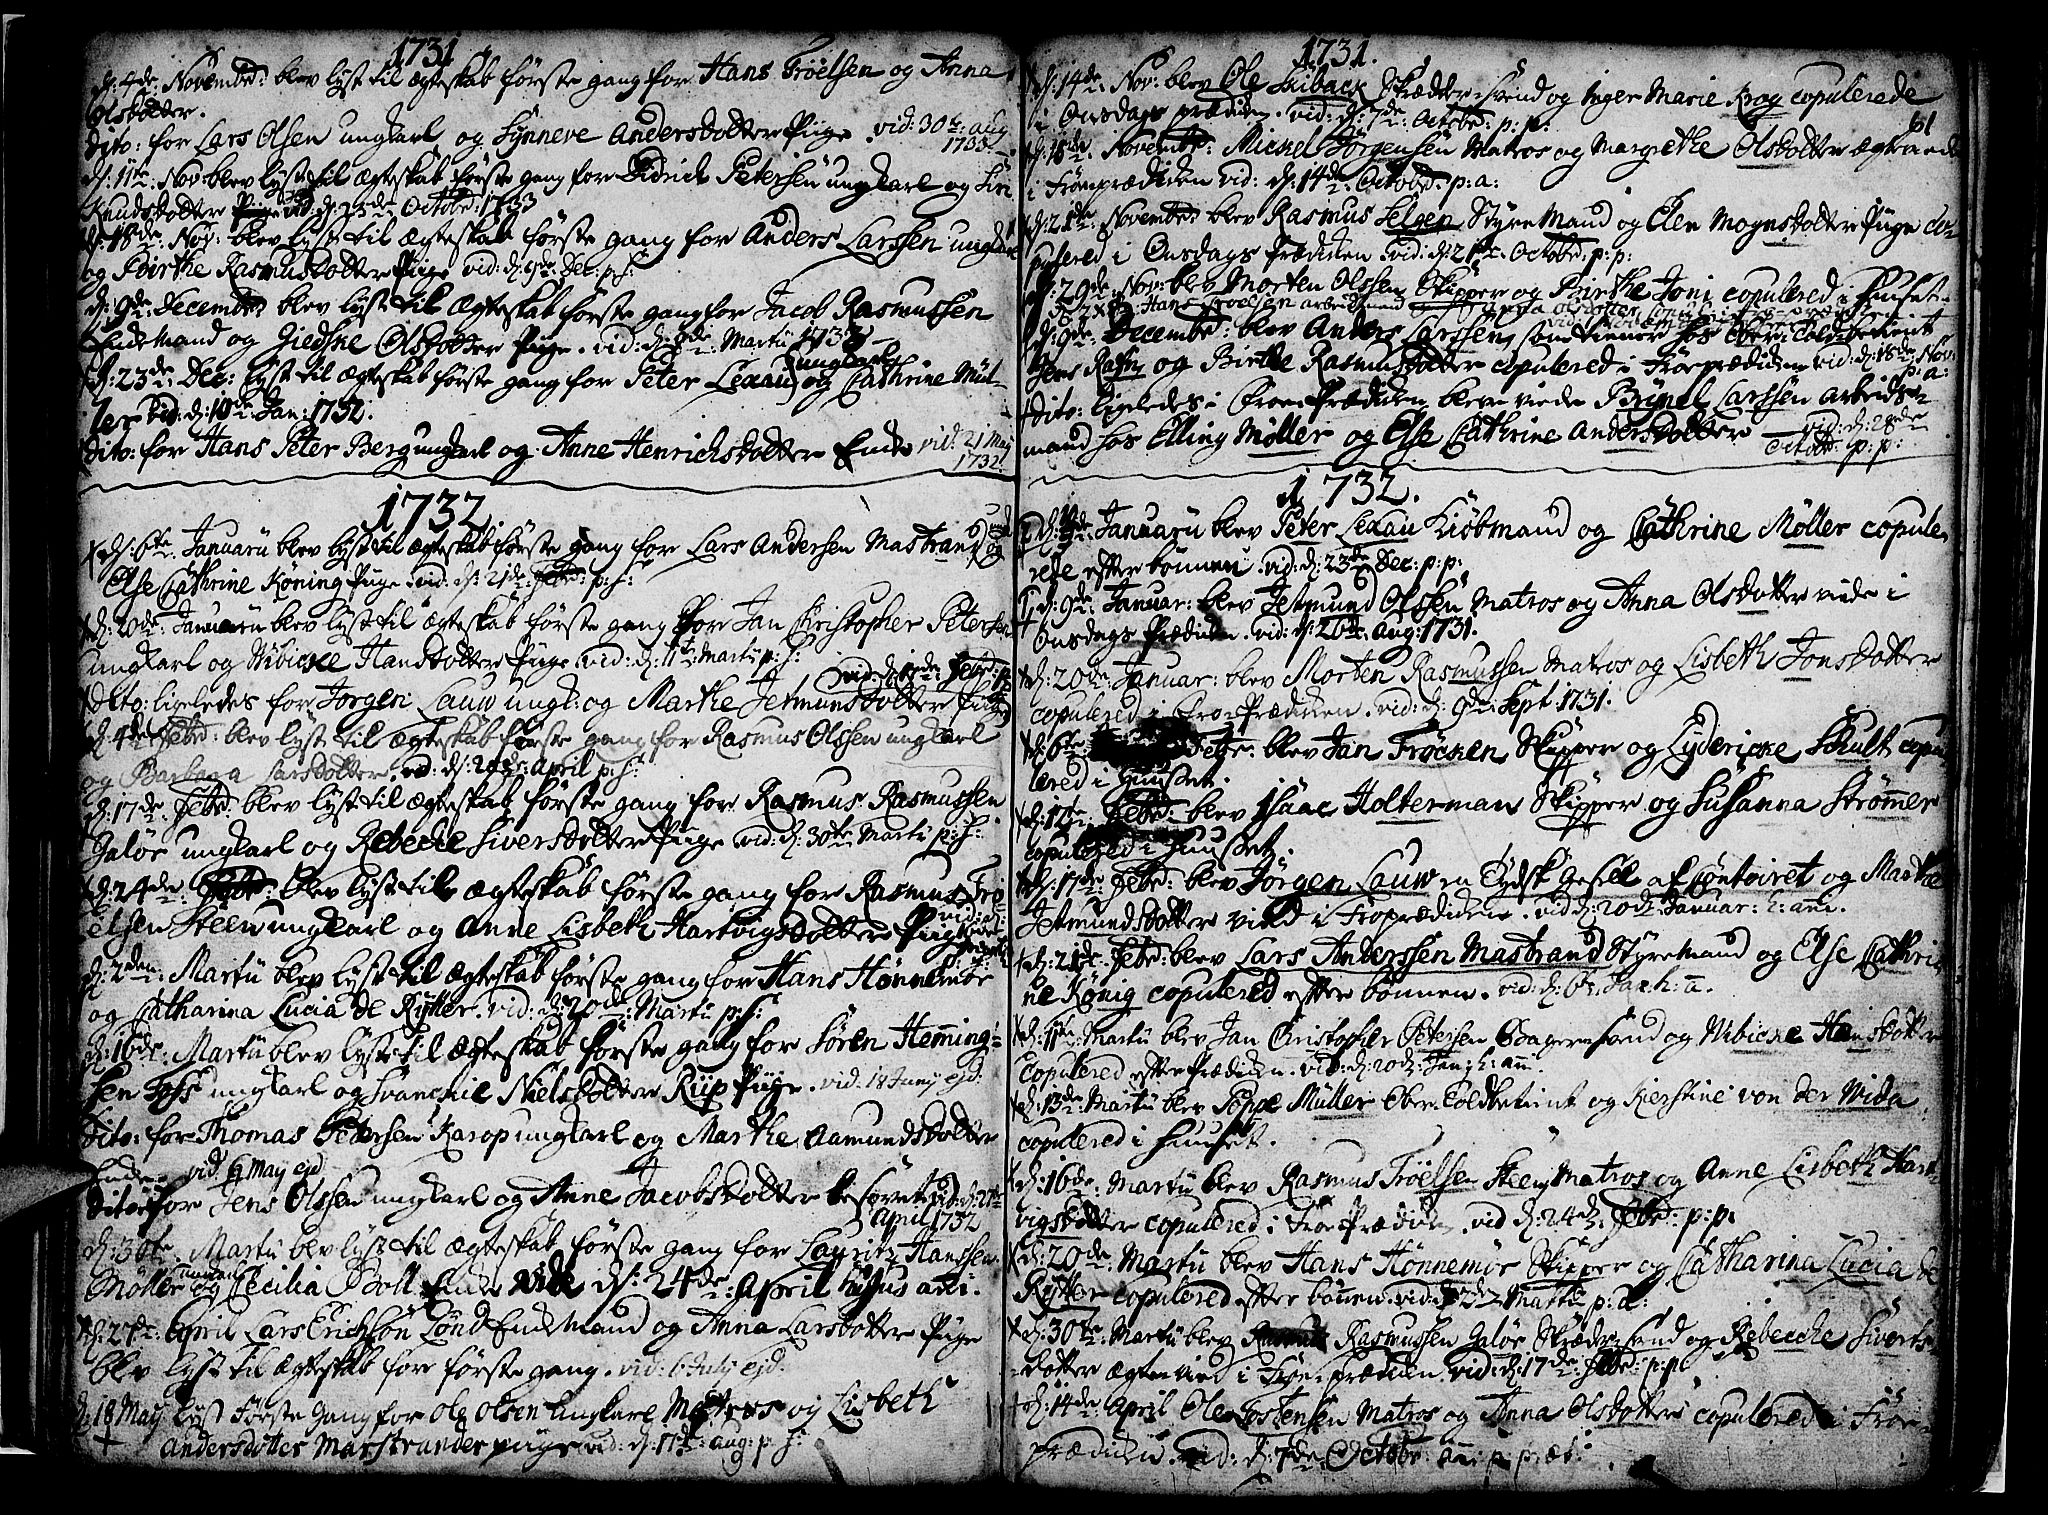 1731
d: 4de: Novembr: blev lyst til ægteskab første gang for Hans Tröelsen og Anna
Olsdotter.
dito: for Lars Olsen ungkarl og Synneve Andersdotter Pige. vid: 30te: aug
1733
d: 11te: Nov: blev lyst til ægteskab første gang for Didrich Petersen ungkarl og Siri
Knudsdotter Pige vid: d: 23de Octobr: 1733
d: 18de: Nov: blev lyst til ægteskab første gang for Anders Larssen ungkarl
og Birthe Rasmusdotter Pige vid: d: 9de: Dec: p: f:
d: 9de: Decembr blev lyst til ægteskab første gang for Jacob Rasmussen
Enkemand og Giedske Olsdotter Pige. vid: d: Martii 1732
d: 23de: Dec: lyst til ægteskab første gang for Peter Lexau ungkarl og Cathrine Mül-
ler vid: d: 10de Jan: 1732.
dito: for Hans Peter Berg ungkarl og Anne Henrichsdotter Enke vid: 21 Maj
1732
1732
d: 6te: Januarii blev lyst til ægteskab første gang for Lars Andersen Mastrand og
Else Cathrine Köning Pige. vid: d: 21de: Febr: p: f:
d: 20de: Januarii blev lyst til ægteskab første gang for Jan Christopher Petersen
ungkarl og Wibicke Hansdotter Pige vid: d: 11te: Martii p: f:
vid: d: 17de: Febr: p:
dito: ligeledes for Jørgen Lauw ungk: og Marthe Jetmunsdotter Pige
d: 4de Febr: blev lyst til ægteskab første gang for Rasmus Olssen ungkarl
og Barbara Larsdotter. vid: d: 20de: April p: f:
d: 17de Febr: blev lyst til ægteskab første gang for Rasmus Rasmussen
Galöe ungkarl og Rebecke Siversdotter Pige vid: d: 30te Martii p: f:
d: 24de: Febr: blev lyst til ægteskab første gang for Rasmus Trö-
elsen Steen ungkarl og Anne Lisbeth Hartvigsdotter Pige
d: 2den: Martii blev lyst til ægteskab første gang for Hans Hönnemör
og Catharina Lucia de Rytter. vid: d: 20de: Martii p: f:
d: 16de: Martii blev lyst til ægteskab første gang for Sören Hemming-
sen ungkarl og Svanckie Nielsdotter Riip Pige. vid: 18 Junij ejd:
Dito: for Thomas Petersen Karop ungkarl og Marthe Aamundsdotter
Enke vid: May ejd
Dito: for Jens Olssen ungkarl og Anne Jacobsdotter besovet vid: d: 27de
April 1732
d: 30te. Martii blev lyst til ægteskab første gang for Lauritz Hanssen
Möller ungkarl og Cecilia Boll Enke vide d: 24de: April hujus anni.
d: 27de: April Lars Erichsön Lönd Enkemand og Anna Larsdotter Pige
blev lyst til ægteskab for første gang. vid: 6 July ejd:
d: 18 Maij lyst Første Gang for Ole Olsen Ungkarl Matros og Lisbeth
Andersdotter Marstrander pige vid: d: 17de: aug: p: f:
1731.
61
d: 14de: Nov: blev Ole Skiback Skrædder-svend og Inger Marie Krog copulerede
i Onsdags prædiken. vid: d: 7de: Octobr: p: p:
d: 18de: Novembr: Mickel Jörgensen Matros og Margrethe Olsdotter ægteviede
i Froeprædiken vid: d: 14de: Octobr: p: a:
d: 21de: Novembr: blev Rasmus Selgen Styremand og Elen Mognsdotter Pige co-
pulered i Onsdags Prædiken. vid: d: 21de: Octobr: p: p:
d: 29de: Nov: blev Morten Olssen Skipper og Birthe Joni copulered i Huuset.
Hans Troelsen arbeidsmand Anna Olsdotter
d: 9de: Decembr: blev Anders Larssen, som tiener hos Ober-Toldbetient
Jens og Birthe Rasmusdotter copulered i Froeprædiken vid: d: 18de Nov:
p: a:
dito: ligeledes i Froe-Prædiken bleve viede Brynel Larssen arbeids-
mand hos Elling Møller og Else Cathrine Andersdotter vid: d: 28de
Octobr: p: p:
1732.
d: Januarii blev Peter Lexau Kiöbmand og Cathrine Møller copule-
rede efter bönnen. vid: d: 23de Dec: p: p:
d: 9de: Januar: blev Jetmund Olssen Matros og Anna Olsdotter viede i
Onsdags Prædiken. vid: d: 26de: Aug: 1731.
d: 20de: Januar: blev Morten Rasmussen Matros og Lisbeth Jonsdotter
copulered i Froe-Prædiken. vid: d: 9de: Sept: 1731.
d: 6te Febr: blev Jan Fröcken Skipper og Lydericke Schult copu-
lered i Huuset.
d: 17de: Febr: blev Isaac Holterman Skipper og Susanna Strømer
copulered i Huuset.
d: 17de: Febr: blev Jörgen Lauw en Tydsk gesell af Contoiret og Marthe
Jetmundsdotter viede i Froprædiken. vid: d: 20de: Januar: h: ann:
d: 21de: Febr: blev Lars Anderssen Mastrand Styremand og Else Cathri-
ne König copulered efter bönnen. vid: d: 6te. Jan: h: a:
d: 11te: Martii blev Jan Christopher Petersen Bagersvend og Wibicke Hansdotter
copulered efter Prædiken. vid: d: 20de: Jan: h: ann:
d: 13de: Martii blev Seppe Müller Ober-Toldbetient og Kierstine von der Wida
copulered i Huuset.
d: 16de: Martii blev Rasmus Tröelsen Steen Matros og Anne Lisbeth Hart-
vigsdotter copulered i Froe-Prædiken. vid d: 24de: Febr: p: p:
d: 20de: Martii blev Hans Hönnemör Skipper og Catharina Lucia de
Rytter copulered efter bönnen. vid: d: 2de Martii p: a:
d: 30te: Martii blev Rasmus Rasmussen Galöe Skrædersvend og Rebecche Siverts-
dotter ægteviede i Froe-prædiken. vid: d: 17de: Febr: p: p:
d: 14de: April Ole Tostensen Matros og Anna Olsdotter copulered i Froe-
prædiken. vid: d: 7de Octobr: ann: p: præt: